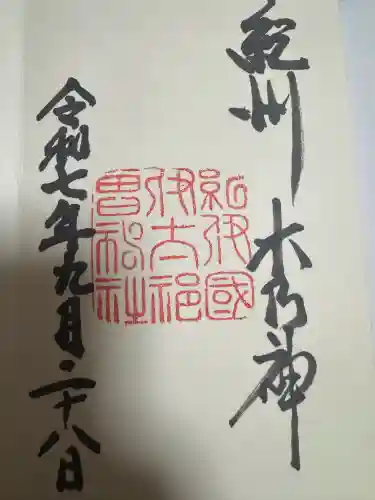 紀州 木乃神
紀伊國
伊太祁
曽神社
令和七年九月二十八日